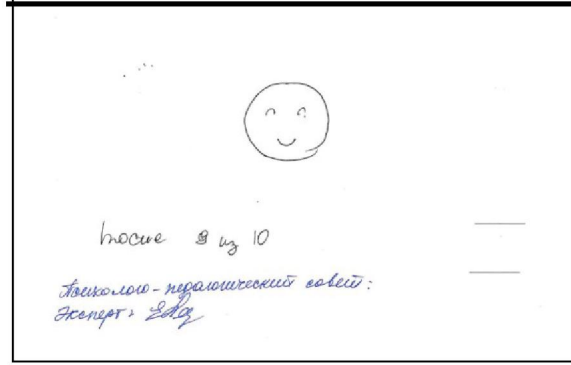 после 9 из 10
Психолого-педагогический совет:
Эксперт: